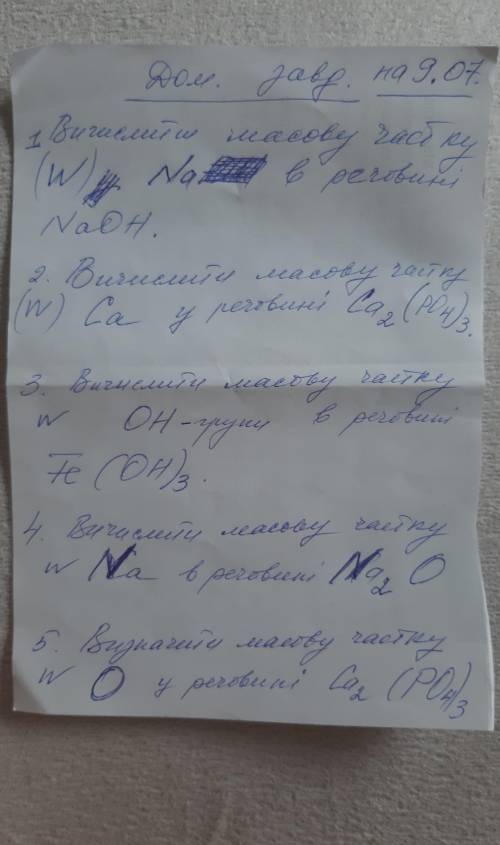 Дом. завд. на 9.07.
1 Вичислити масову частку
(W) Na в речовині
NaOH.
2. Вичислити масову частку
(W) Ca у речовині Ca₂(PO₄)₃.
3. Вичислити масову частку
W OH-групи в речовині
Fe(OH)₃.
4. Вичислити масову частку
W Na в речовині Na₂O
5. Визначити масову частку
W O у речовині Ca₂(PO₄)₃